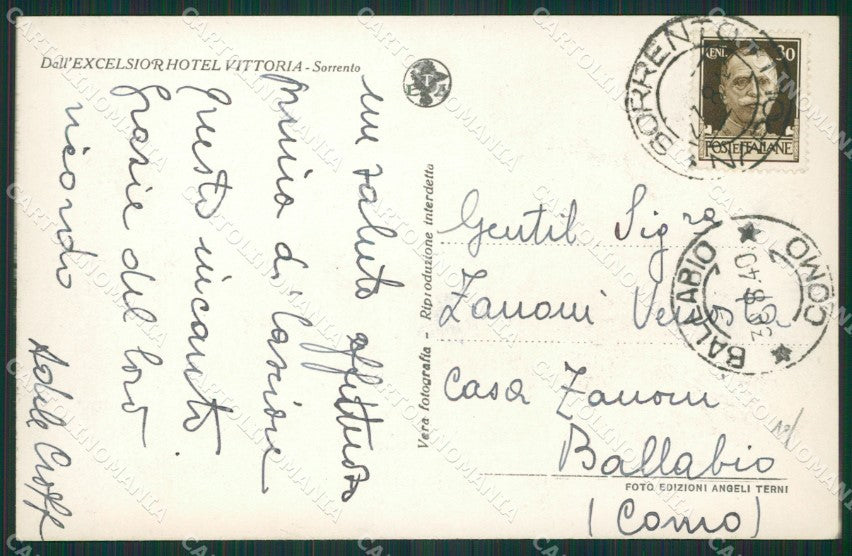 Dall'EXCELSIOR HOTEL VITTORIA - Sorrento
un saluto affettuoso
prima di lasciare
questo incanto.
Grazie del loro
ricordo
Vera fotografia - Riproduzione interdetta
CENT. 30
POSTE ITALIANE
SORRENTO
Gentil Sig.ra
Zanoni
Casa Zanoni
Ballabio
(Como)
BALLABIO
COMO
FOTO EDIZIONI ANGELI TERNI
CARTOLINOMANIA